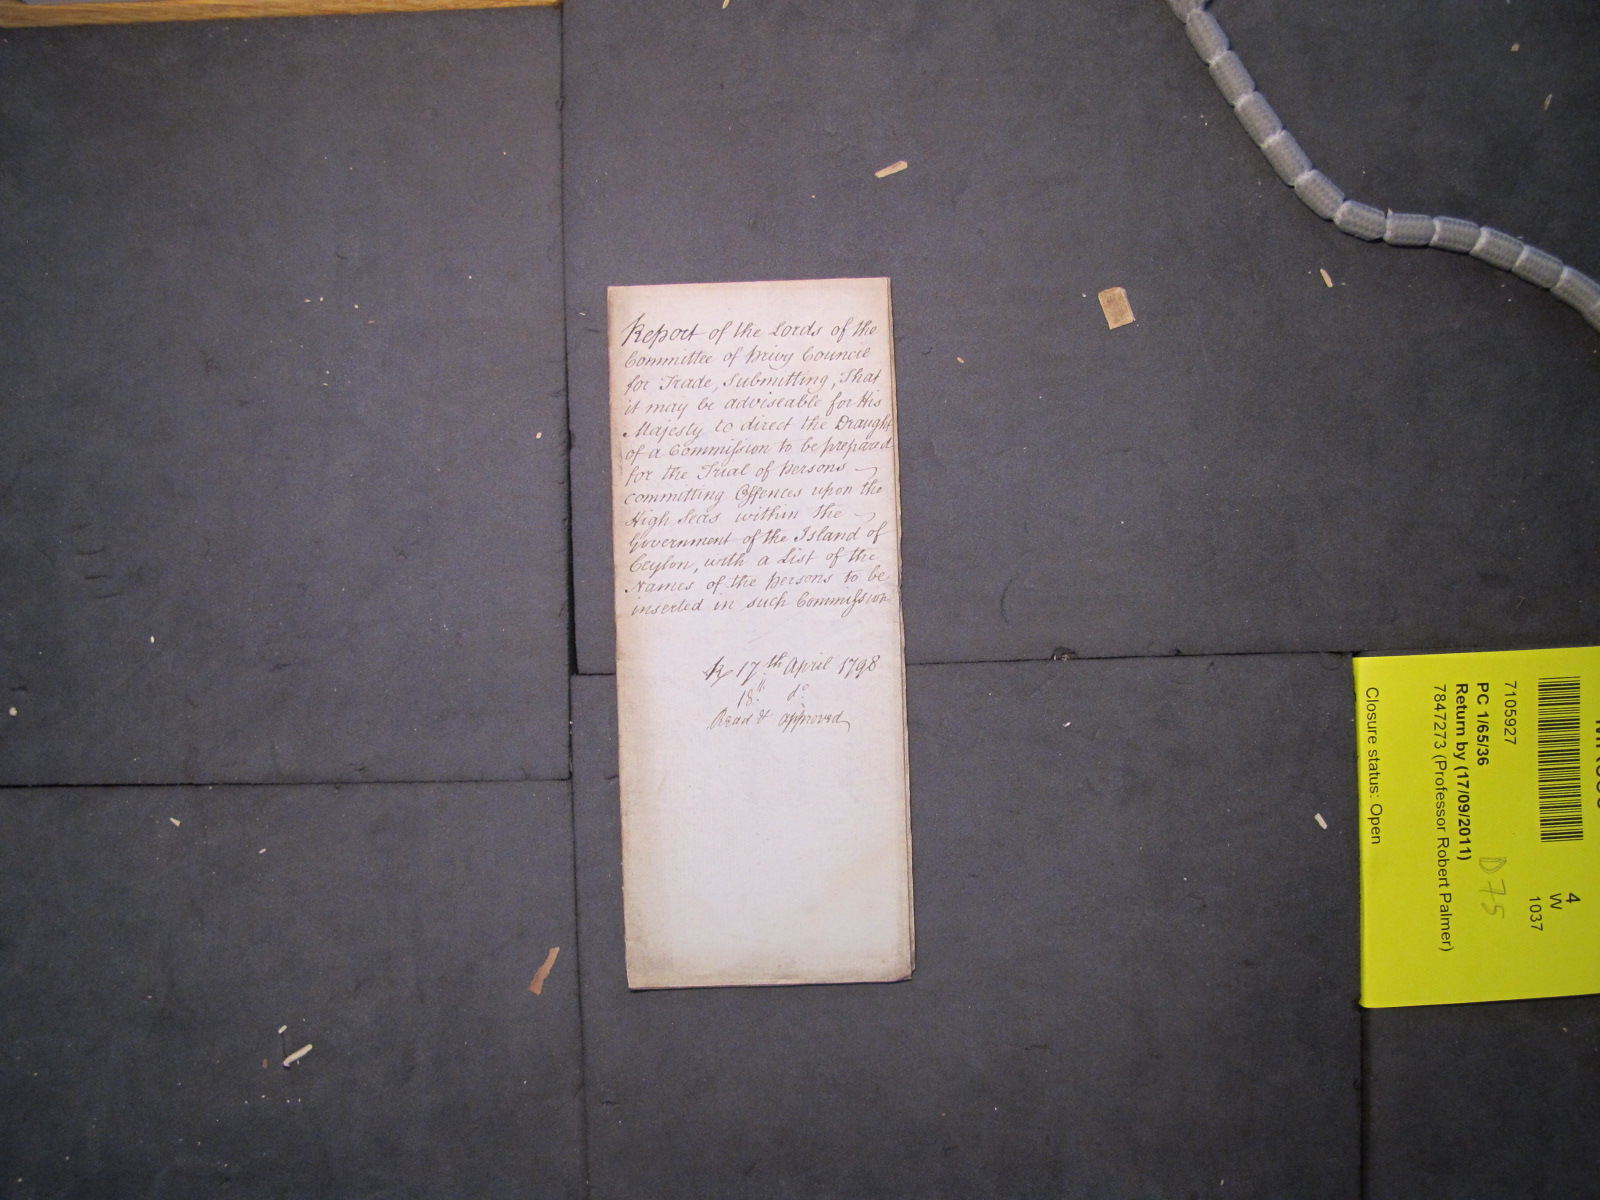 Report of the Lords of the
Committee of Privy Council
for Trade, Submitting, That
it may be adviseable for His
Majesty to direct the Draught
of a Commission to be prepared
for the Trial of Persons
committing Offences upon the
High Seas within the
Government of the Island of
Ceylon, with a List of the
Names of the Persons to be
inserted in such Commission
R 17th April 1798
18th do
Read & approved
4
W
1037
7105927
PC 1/65/36
Return by (17/09/2011)
7847273 (Professor Robert Palmer)
D 75
Closure status: Open